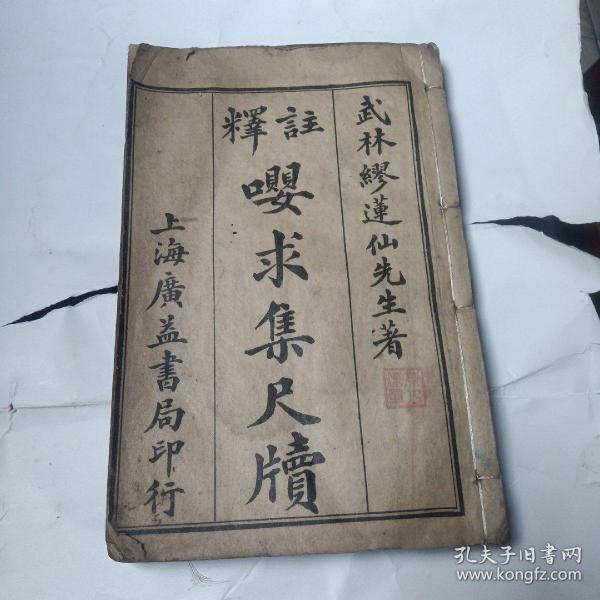 武林繆蓮仙先生著
註釋
嚶求集尺牘
上海廣益書局印行
孔夫子旧书网
www.kongfz.com